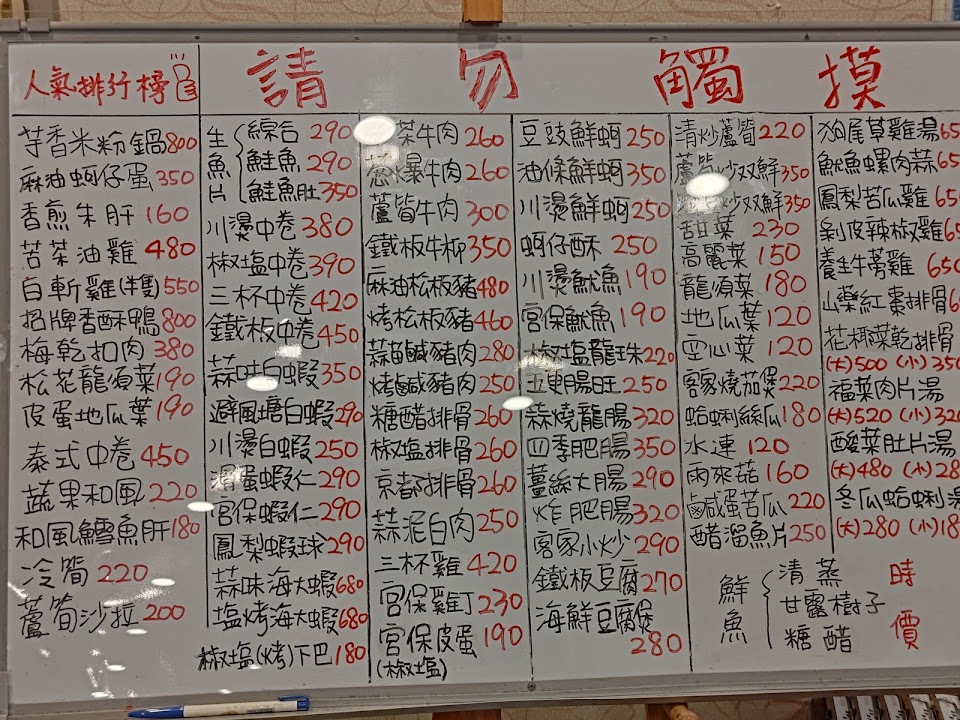 請勿觸摸
人氣排行榜
芋香米粉鍋800
麻油蚵仔蛋350
香煎朱肝160
苦茶油雞480
白斬雞(半隻)550
招牌香酥鴨800
梅乾扣肉380
松花龍須菜190
皮蛋地瓜葉190
泰式中卷450
蔬果和風220
和風鱈魚肝180
冷筍220
蘆筍沙拉200
生魚片
綜合290
鮭魚290
鮭魚肚350
川燙中卷380
椒塩中卷390
三杯中卷420
鐵板中卷450
蒜味白蝦350
避風塘白蝦290
川燙白蝦250
滑蛋蝦仁290
宮保蝦仁290
鳳梨蝦球290
蒜味海大蝦680
塩烤海大蝦680
椒塩(烤)下巴180
菜牛肉260
蔥爆牛肉260
蘆筍牛肉300
鐵板牛柳350
麻油松板豬480
烤松板豬460
蒜苗鹹豬肉280
烤鹹豬肉250
糖醋排骨260
椒塩排骨260
京都排骨260
蒜泥白肉250
三杯雞420
宮保雞丁230
宮保皮蛋190
(椒塩)
豆豉鮮蚵250
油條鮮蚵350
川燙鮮蚵250
蚵仔酥250
川燙魷魚190
宮保魷魚190
椒塩龍珠220
五更腸旺250
蒜燒龍腸320
四季肥腸350
薑絲大腸290
炸肥腸320
客家小炒290
鐵板豆腐270
海鮮豆腐煲
280
清炒蘆筍220
蘆筍炒双鮮350
炒双鮮350
甜菜230
高麗菜150
龍須菜180
地瓜菜120
空心菜120
客家燒茄煲220
蛤蜊絲瓜180
水連120
雨來菇160
鹹蛋苦瓜220
醋溜魚片250
狗尾草雞湯65
魷魚螺肉蒜65
鳳梨苦瓜雞65
剝皮辣椒雞65
養生牛蒡雞650
山藥紅棗排骨6
花椰菜乾排骨
(大)500(小)350
福菜肉片湯
(大)520(小)320
酸菜肚片湯
(大)480(小)28
冬瓜蛤蜊湯
(大)280(小)18
鮮魚
清蒸
甘露樹子
糖醋
時價